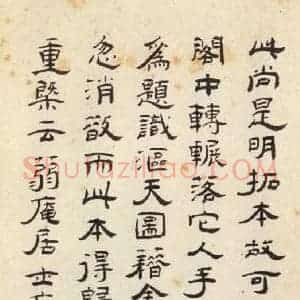 此尚是明拓本故可
閣中轉輾落它人手
為題識漚天圖籍舍
忽消散而此本得歸
重槧云弱庵居士
Shufaziliao.COM